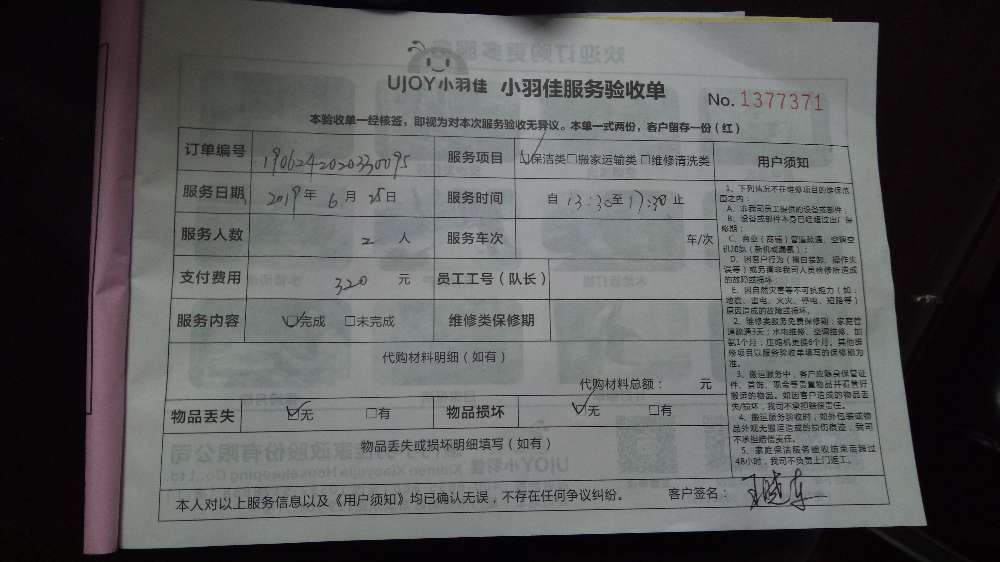 UJOY小羽佳 小羽佳服务验收单 No. 1377371
本验收单一经核签，即视为对本次服务验收无异议。本单一式两份，客户留存一份（红）
订单编号 1906242020330095 服务项目 ☑保洁类□搬家运输类□维修清洗类 用户须知
服务日期 2019年 6月 25日 服务时间 自 13:30至17:30止
服务人数 2 人 服务车次 车/次
支付费用 320 元 员工工号（队长）
服务内容 ☑完成 □未完成 维修类保修期
代购材料明细（如有）
代购材料总额： 元
物品丢失 ☑无 □有 物品损坏 ☑无 □有
物品丢失或损坏明细填写（如有）
本人对以上服务信息以及《用户须知》均已确认无误，不存在任何争议纠纷。 客户签名：
1、下列情况不在维修项目的维保范
围之内：
A、非我司员工提供的设备或部件；
B、设备或部件本身已经超过出厂保
修期；
C、商业（商铺）管道疏通、空调空
机加氨（新机或漏氨）；
D、因客户行为（擅自装卸、操作失
误等）或另请非我司人员检修所造成
的故障或损坏；
E、因自然灾害等不可抗拒力（如：
地震、雷电、火灾、停电、短路等）
原因造成的故障或损坏。
2、维修类服务免费保修期：家庭管
道疏通3天；水电维修、空调维修、加
氨1个月；压缩机更换6个月。其他维
修项目以服务验收单填写的保修期为
准。
3、搬运服务中，客户应随身保管证
件、首饰、现金等贵重物品并看管好
搬运的物品。如因客户造成的物品丢
失/损坏，我司不承担赔偿责任。
4、搬运服务验收时，如外包装或物
品外观无搬运造成的损伤痕迹，我司
不承担赔偿责任。
5、家庭保洁服务验收结束后超过
48小时，我司不负责上门返工。